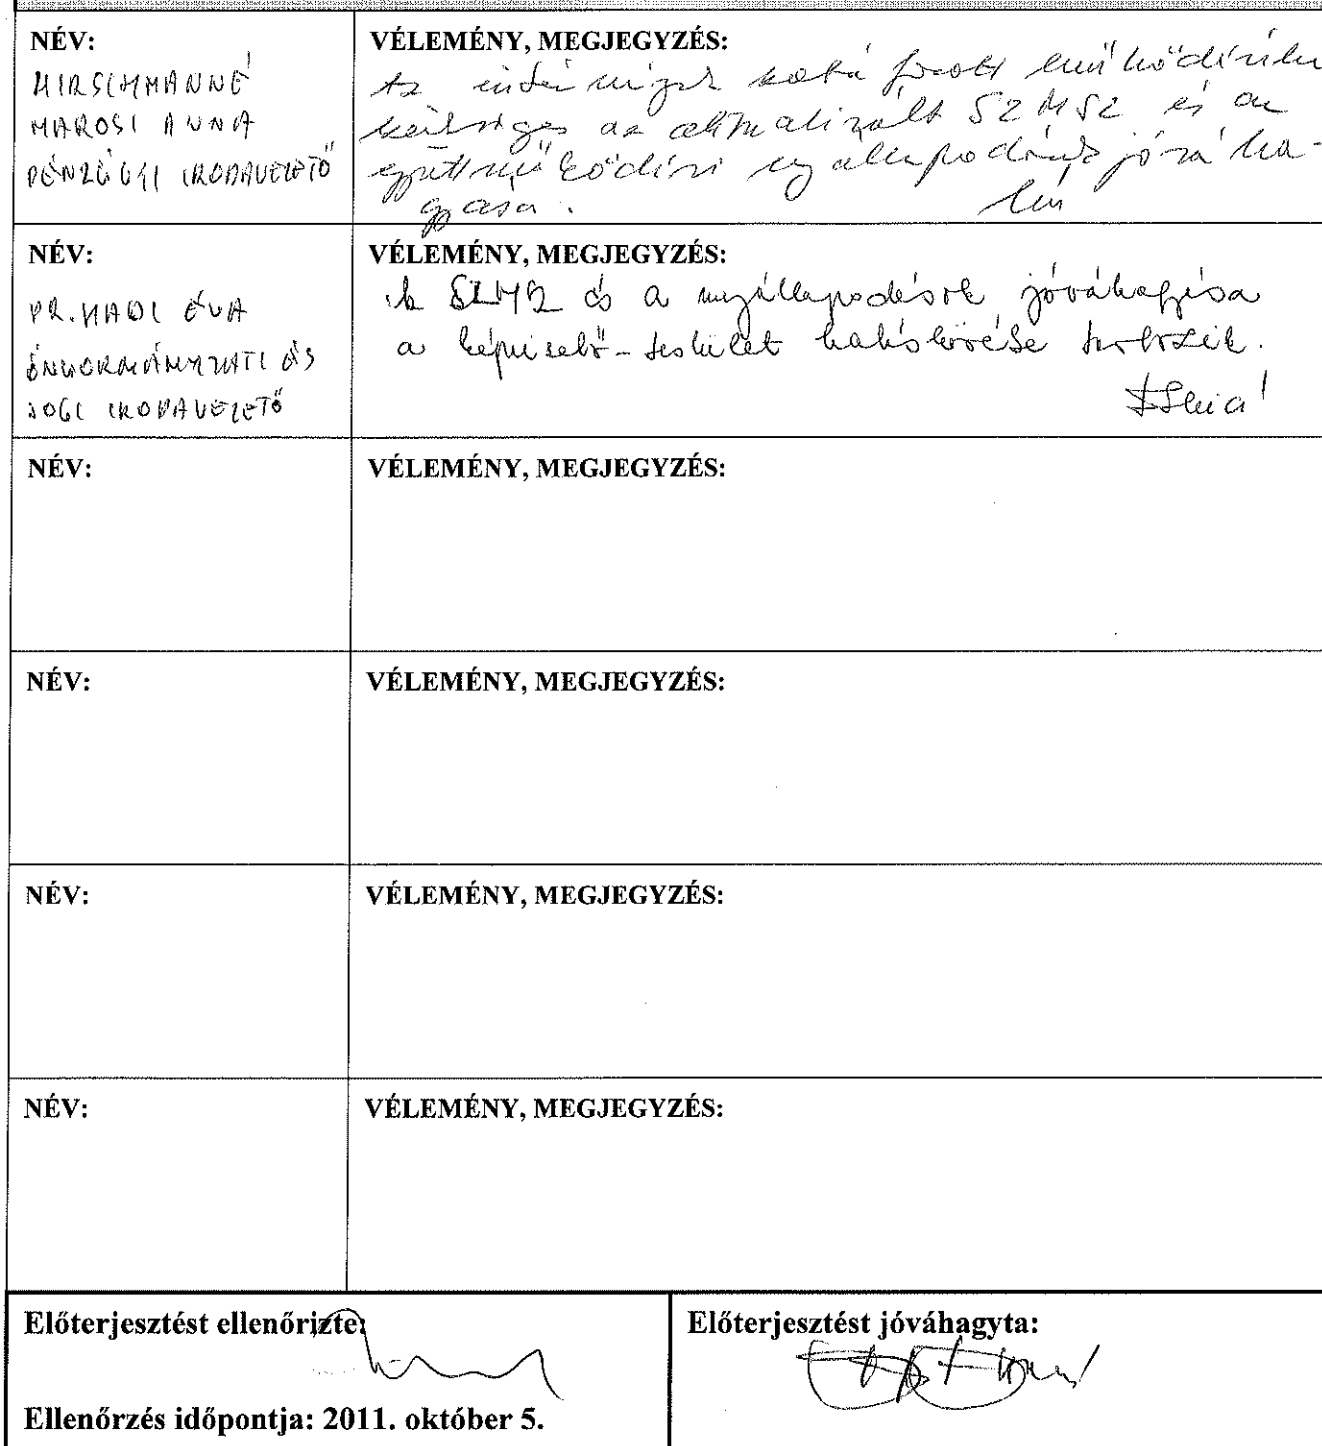 NÉV:
HIRSCHMANNÉ
MAROSI ANNA
PÉNZÜGYI IRODAVEZETŐ
VÉLEMÉNY, MEGJEGYZÉS:
Az intézmények működéséhez
szükséges az aktualizált SZMSZ és az
együttműködési megállapodások jóváha-
gyása.
NÉV:
DR. MADL ÉVA
ÖNKORMÁNYZATI ÉS
JOGI IRODAVEZETŐ
VÉLEMÉNY, MEGJEGYZÉS:
A SZMSZ és a megállapodások jóváhagyása
a képviselő-testület hatáskörébe tartozik.
NÉV:
VÉLEMÉNY, MEGJEGYZÉS:
NÉV:
VÉLEMÉNY, MEGJEGYZÉS:
NÉV:
VÉLEMÉNY, MEGJEGYZÉS:
NÉV:
VÉLEMÉNY, MEGJEGYZÉS:
Előterjesztést ellenőrizte:
Ellenőrzés időpontja: 2011. október 5.
Előterjesztést jóváhagyta: